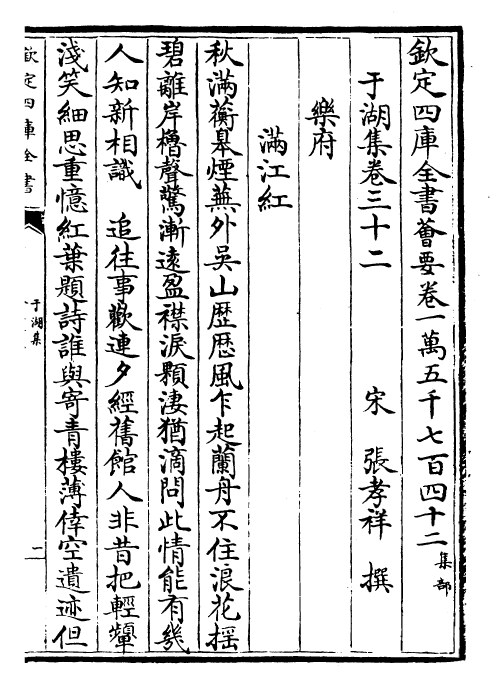 欽定四庫全書薈要卷一萬五千七百四十二 集部
于湖集卷三十二
宋 張孝祥 撰
樂府
滿江紅
秋滿蘅皋煙蕪外吳山歴歴風乍起蘭舟不住浪花揺
碧離岸櫓聲驚漸逺盈襟淚顆淒猶滴問此情能有幾
人知新相識 追往事歡連夕經舊館人非昔把輕顰
淺笑細思重憶紅葉題詩誰與寄青樓薄倖空遺迹但
欽定四庫全書
于湖集